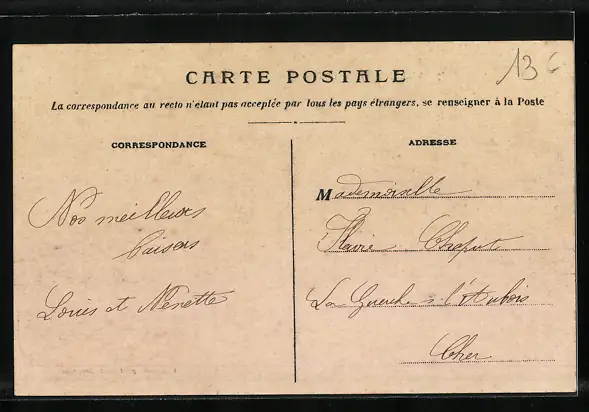 13 €
CARTE POSTALE
La correspondance au recto n'étant pas acceptée par tous les pays étrangers, se renseigner à la Poste
CORRESPONDANCE
ADRESSE
Nos meilleurs
baisers
Louis et Nénette
Mademoiselle
Chaput
La Guerche s. l'Aubois
Cher